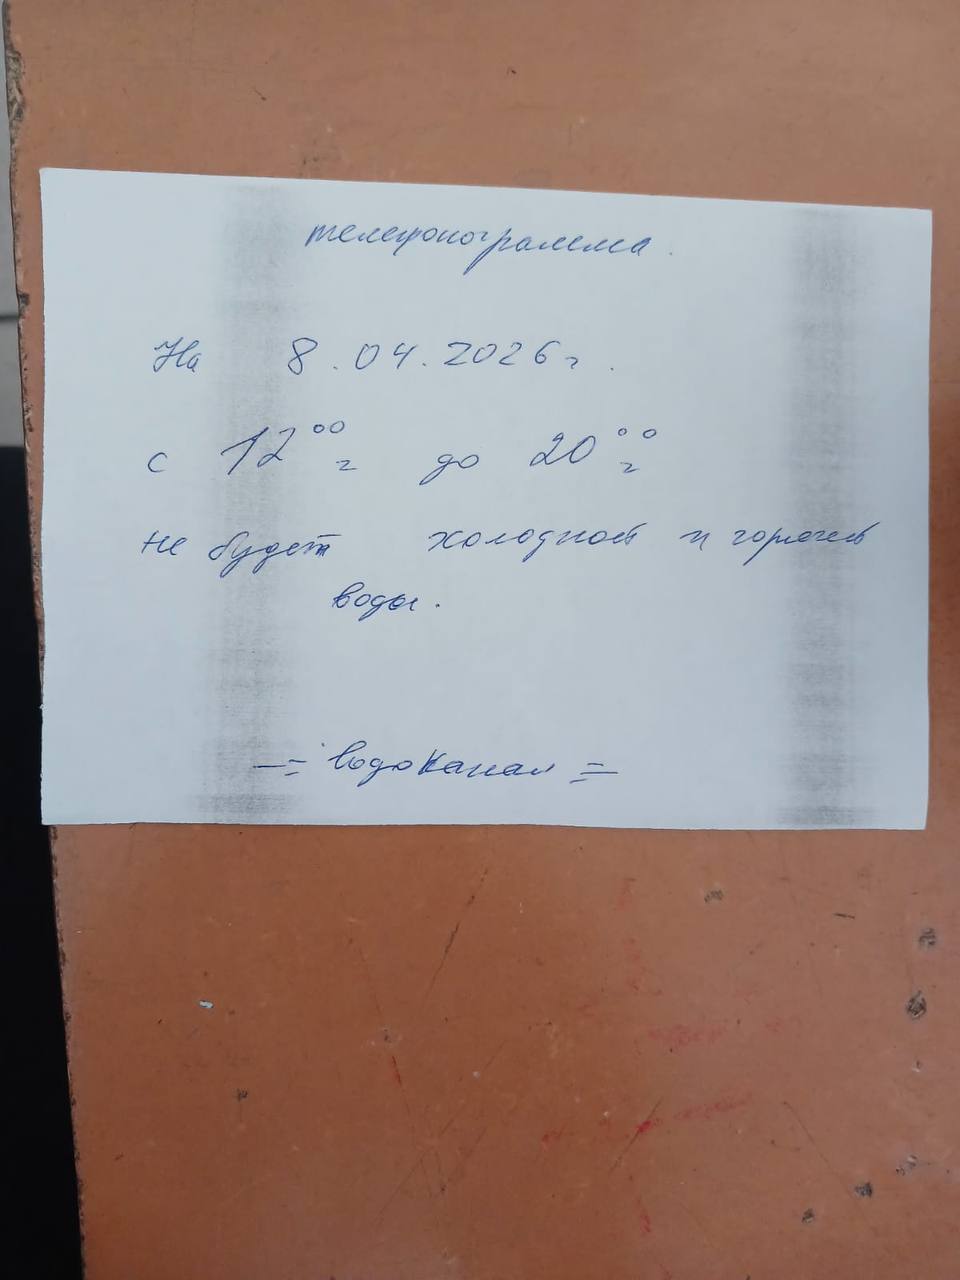 телефонограмма.
На 8.04.2026г.
с 12⁰⁰ г до 20⁰⁰ г
не будет холодной и горячей
воды.
-= Водоканал =-